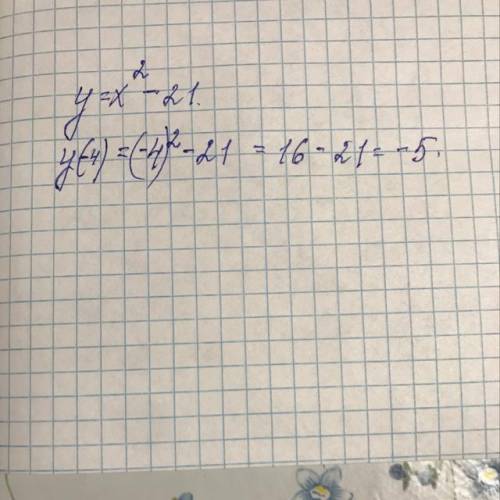 y=x² - 21.
y(-4) = (-4)² - 21 = 16 - 21 = -5.